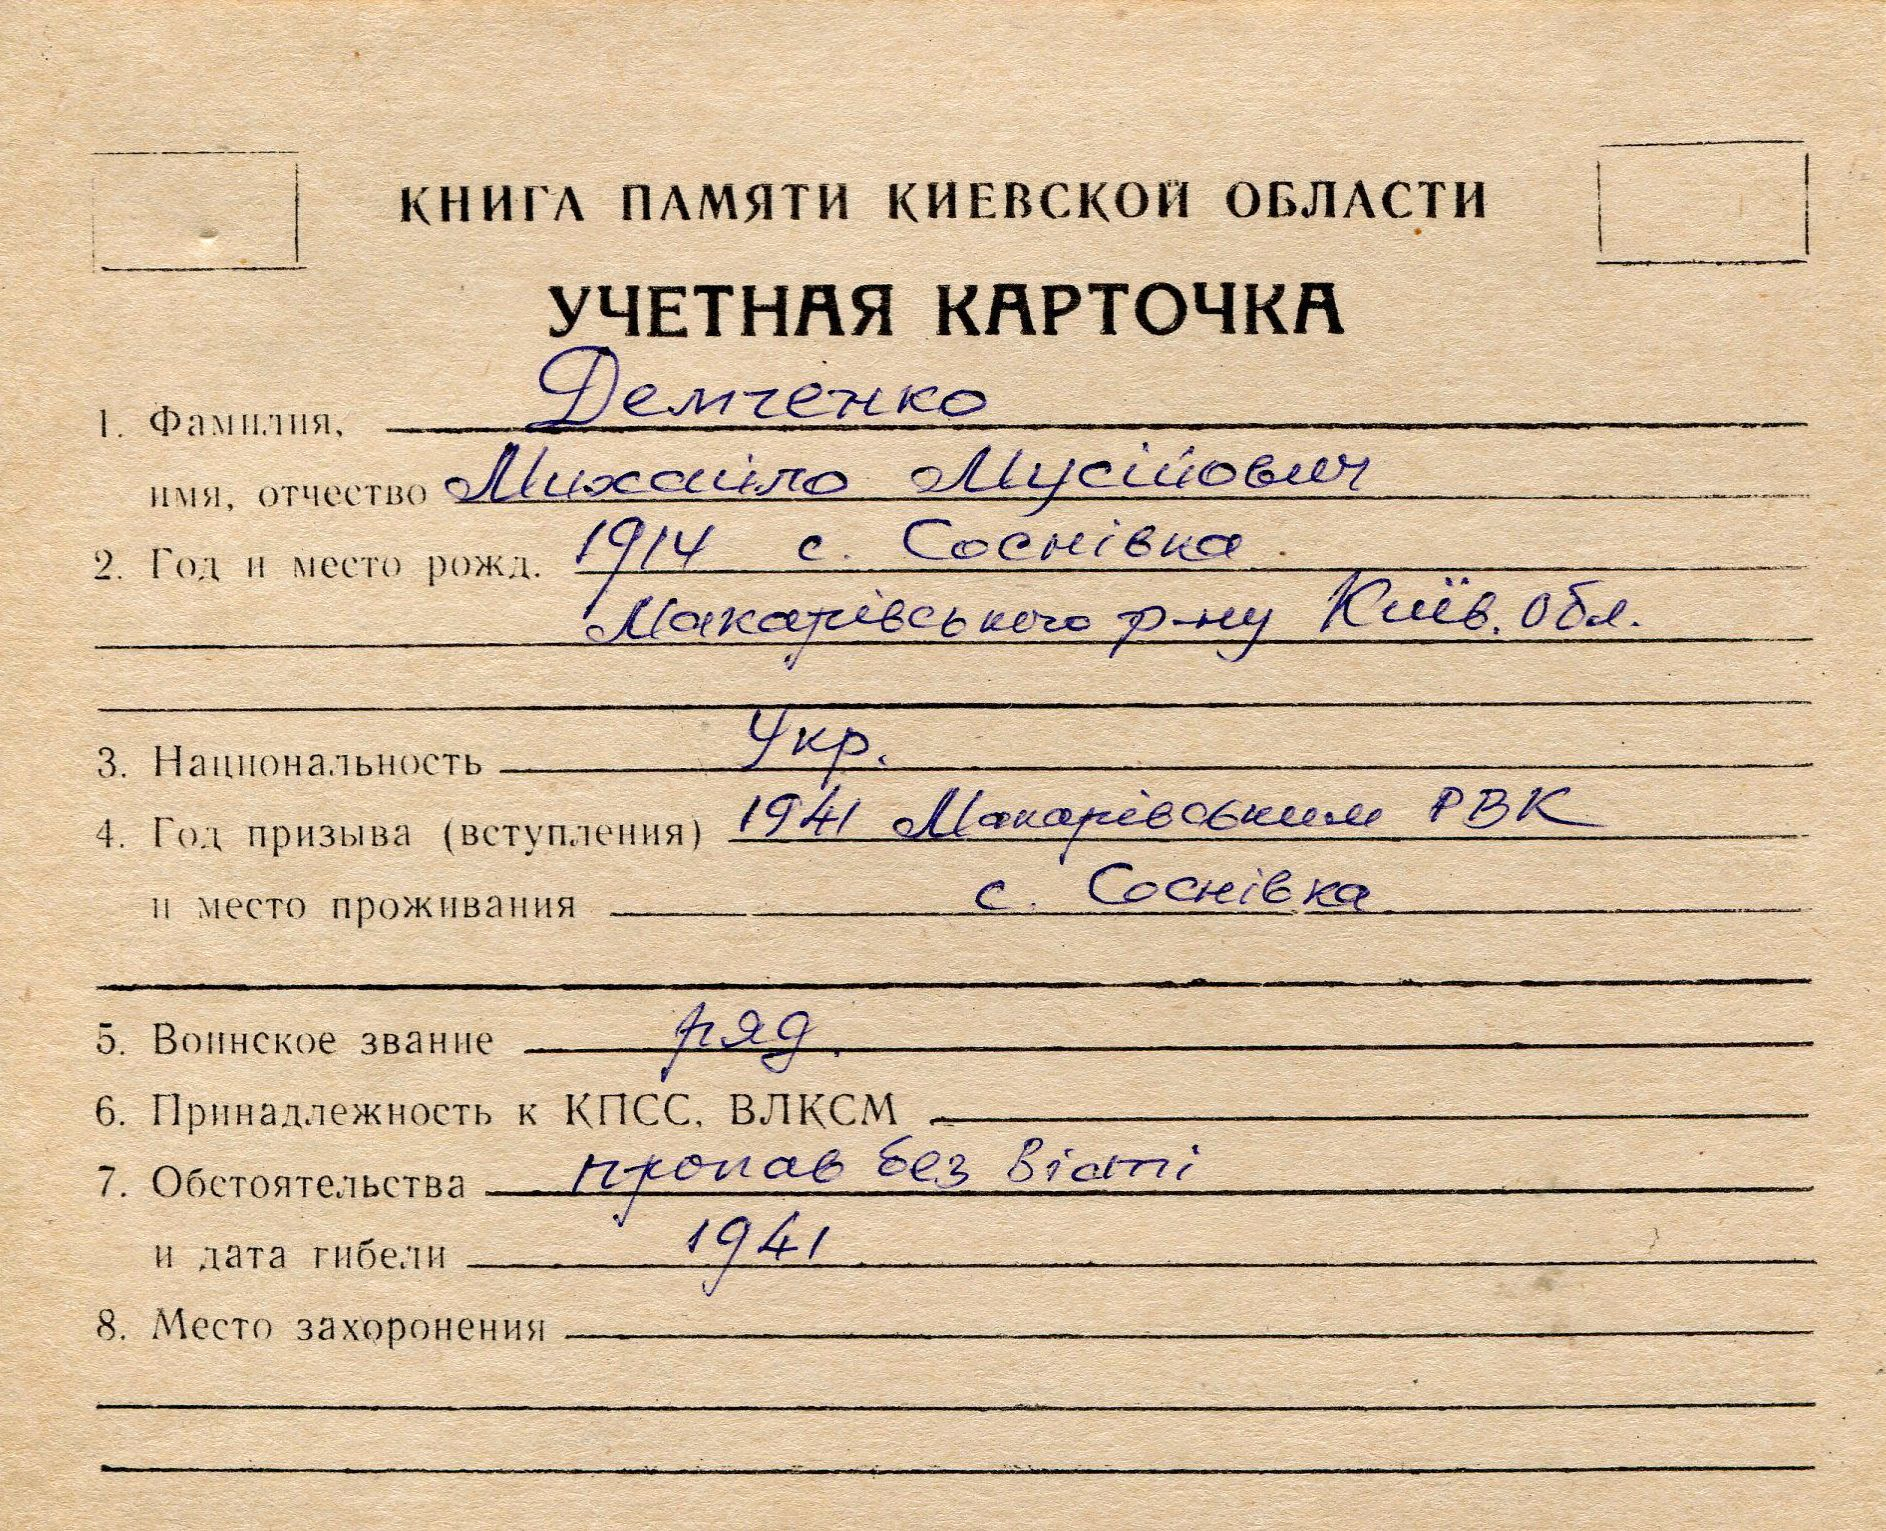 КНИГА ПАМЯТИ КИЕВСКОЙ ОБЛАСТИ
УЧЕТНАЯ КАРТОЧКА
1. Фамилия, Демченко
имя, отчество Михайло Мусійович
2. Год и место рожд. 1914 с. Соснівка
Макарівського р-ну Київ. обл.
3. Национальность Укр.
4. Год призыва (вступления) 1941 Макарівським РВК
и место проживания с. Соснівка
5. Воинское звание ряд.
6. Принадлежность к КПСС, ВЛКСМ
7. Обстоятельства пропав без вісті
и дата гибели 1941
8. Место захоронения